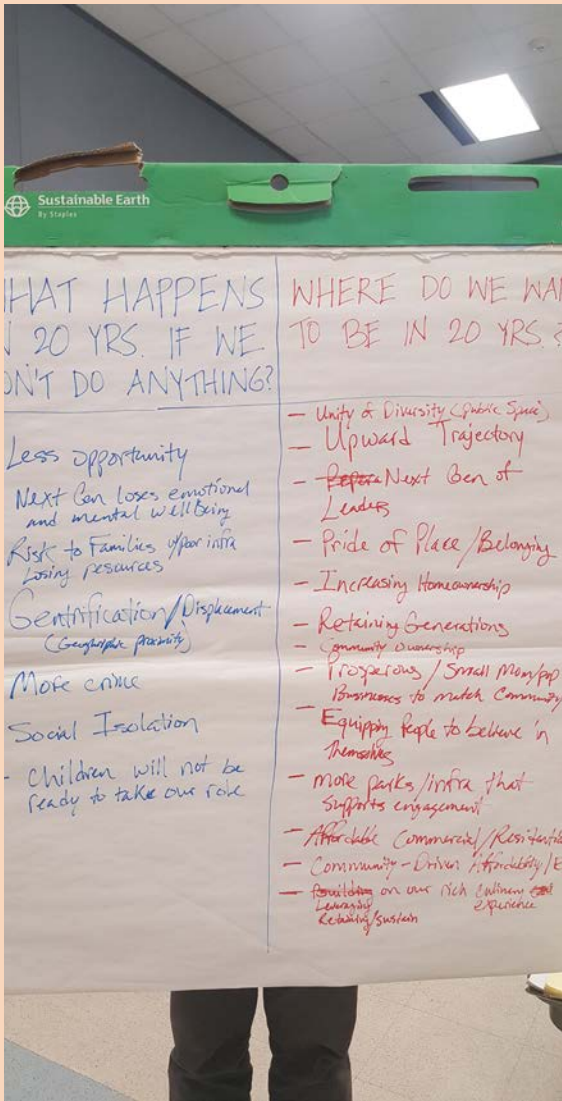 Sustainable Earth
By Staples
HAT HAPPENS
N 20 YRS. IF WE
ON'T DO ANYTHING?
Less opportunity
Next Gen loses emotional
and mental wellBeing
Risk to Families w/poor infra
Losing resources
Gentrification/Displacement
(Geographic proximity)
More crime
Social Isolation
- Children will not be
ready to take our role
WHERE DO WE WAN
TO BE IN 20 YRS.?
- Unity & Diversity (Public Space)
- Upward Trajectory
- Next Gen of
Leaders
- Pride of Place/Belonging
- Increasing Homeownership
- Retaining Generations
- Community ownership
- Prosperous / Small Mom/pop
Businesses to match Community
- Equipping People to believe in
Themselves
- more parks/infra that
supports engagement
- Affordable Commercial/Residentia
- Community-Driven Affordability/E
- Building on our rich culinary
Leveraging experience
Retaining/sustain